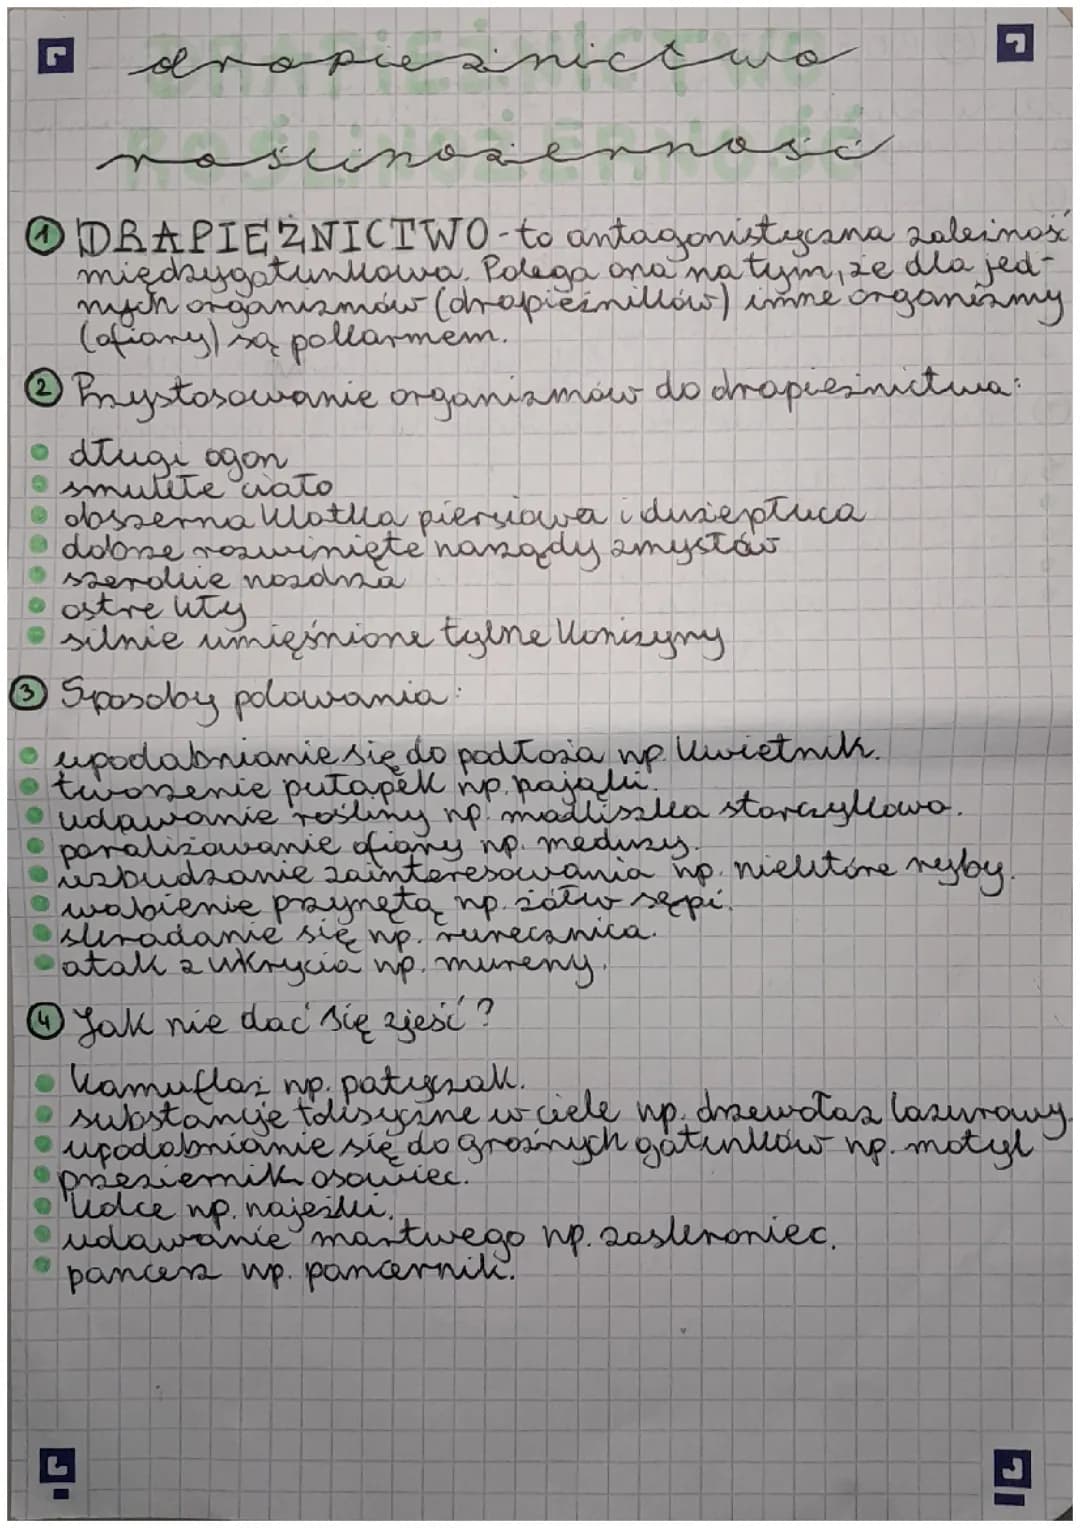 drapieżnictwo
roślinożerność
1 DRAPIEŻNICTWO - to antagonistyczna zależność
międzygatunkowa. Polega ona na tym, że dla jed-
nych organizmów (drapieżników) inne organizmy
(ofiary) są pokarmem.
2 Przystosowanie organizmów do drapieżnictwa:
długi ogon
smukłe ciało
obszerna klatka piersiowa i duże płuca
dobrze rozwinięte narządy zmysłów
szerokie nozdrza
ostre kły
silnie umięśnione tylne kończyny
3 Sposoby polowania:
upodabnianie się do podłoża np. kwietnik.
tworzenie pułapek np. pająki.
udawanie rośliny np. modliszka storczykowa.
paraliżowanie ofiary np. meduzy.
wzbudzanie zainteresowania np. niektóre ryby.
wabienie przynętą np. żółw sępi.
skradanie się np. rurecznica.
atak z ukrycia np. mureny.
4 Jak nie dać się zjeść?
kamuflaż np. patyczak.
substancje toksyczne w ciele np. drzewołaz lazurowy.
upodobnianie się do groźnych gatunków np. motyl
przeziernik osowiec.
kolce np. najeżki.
udawanie martwego np. zaskroniec.
pancerz np. pancernik.